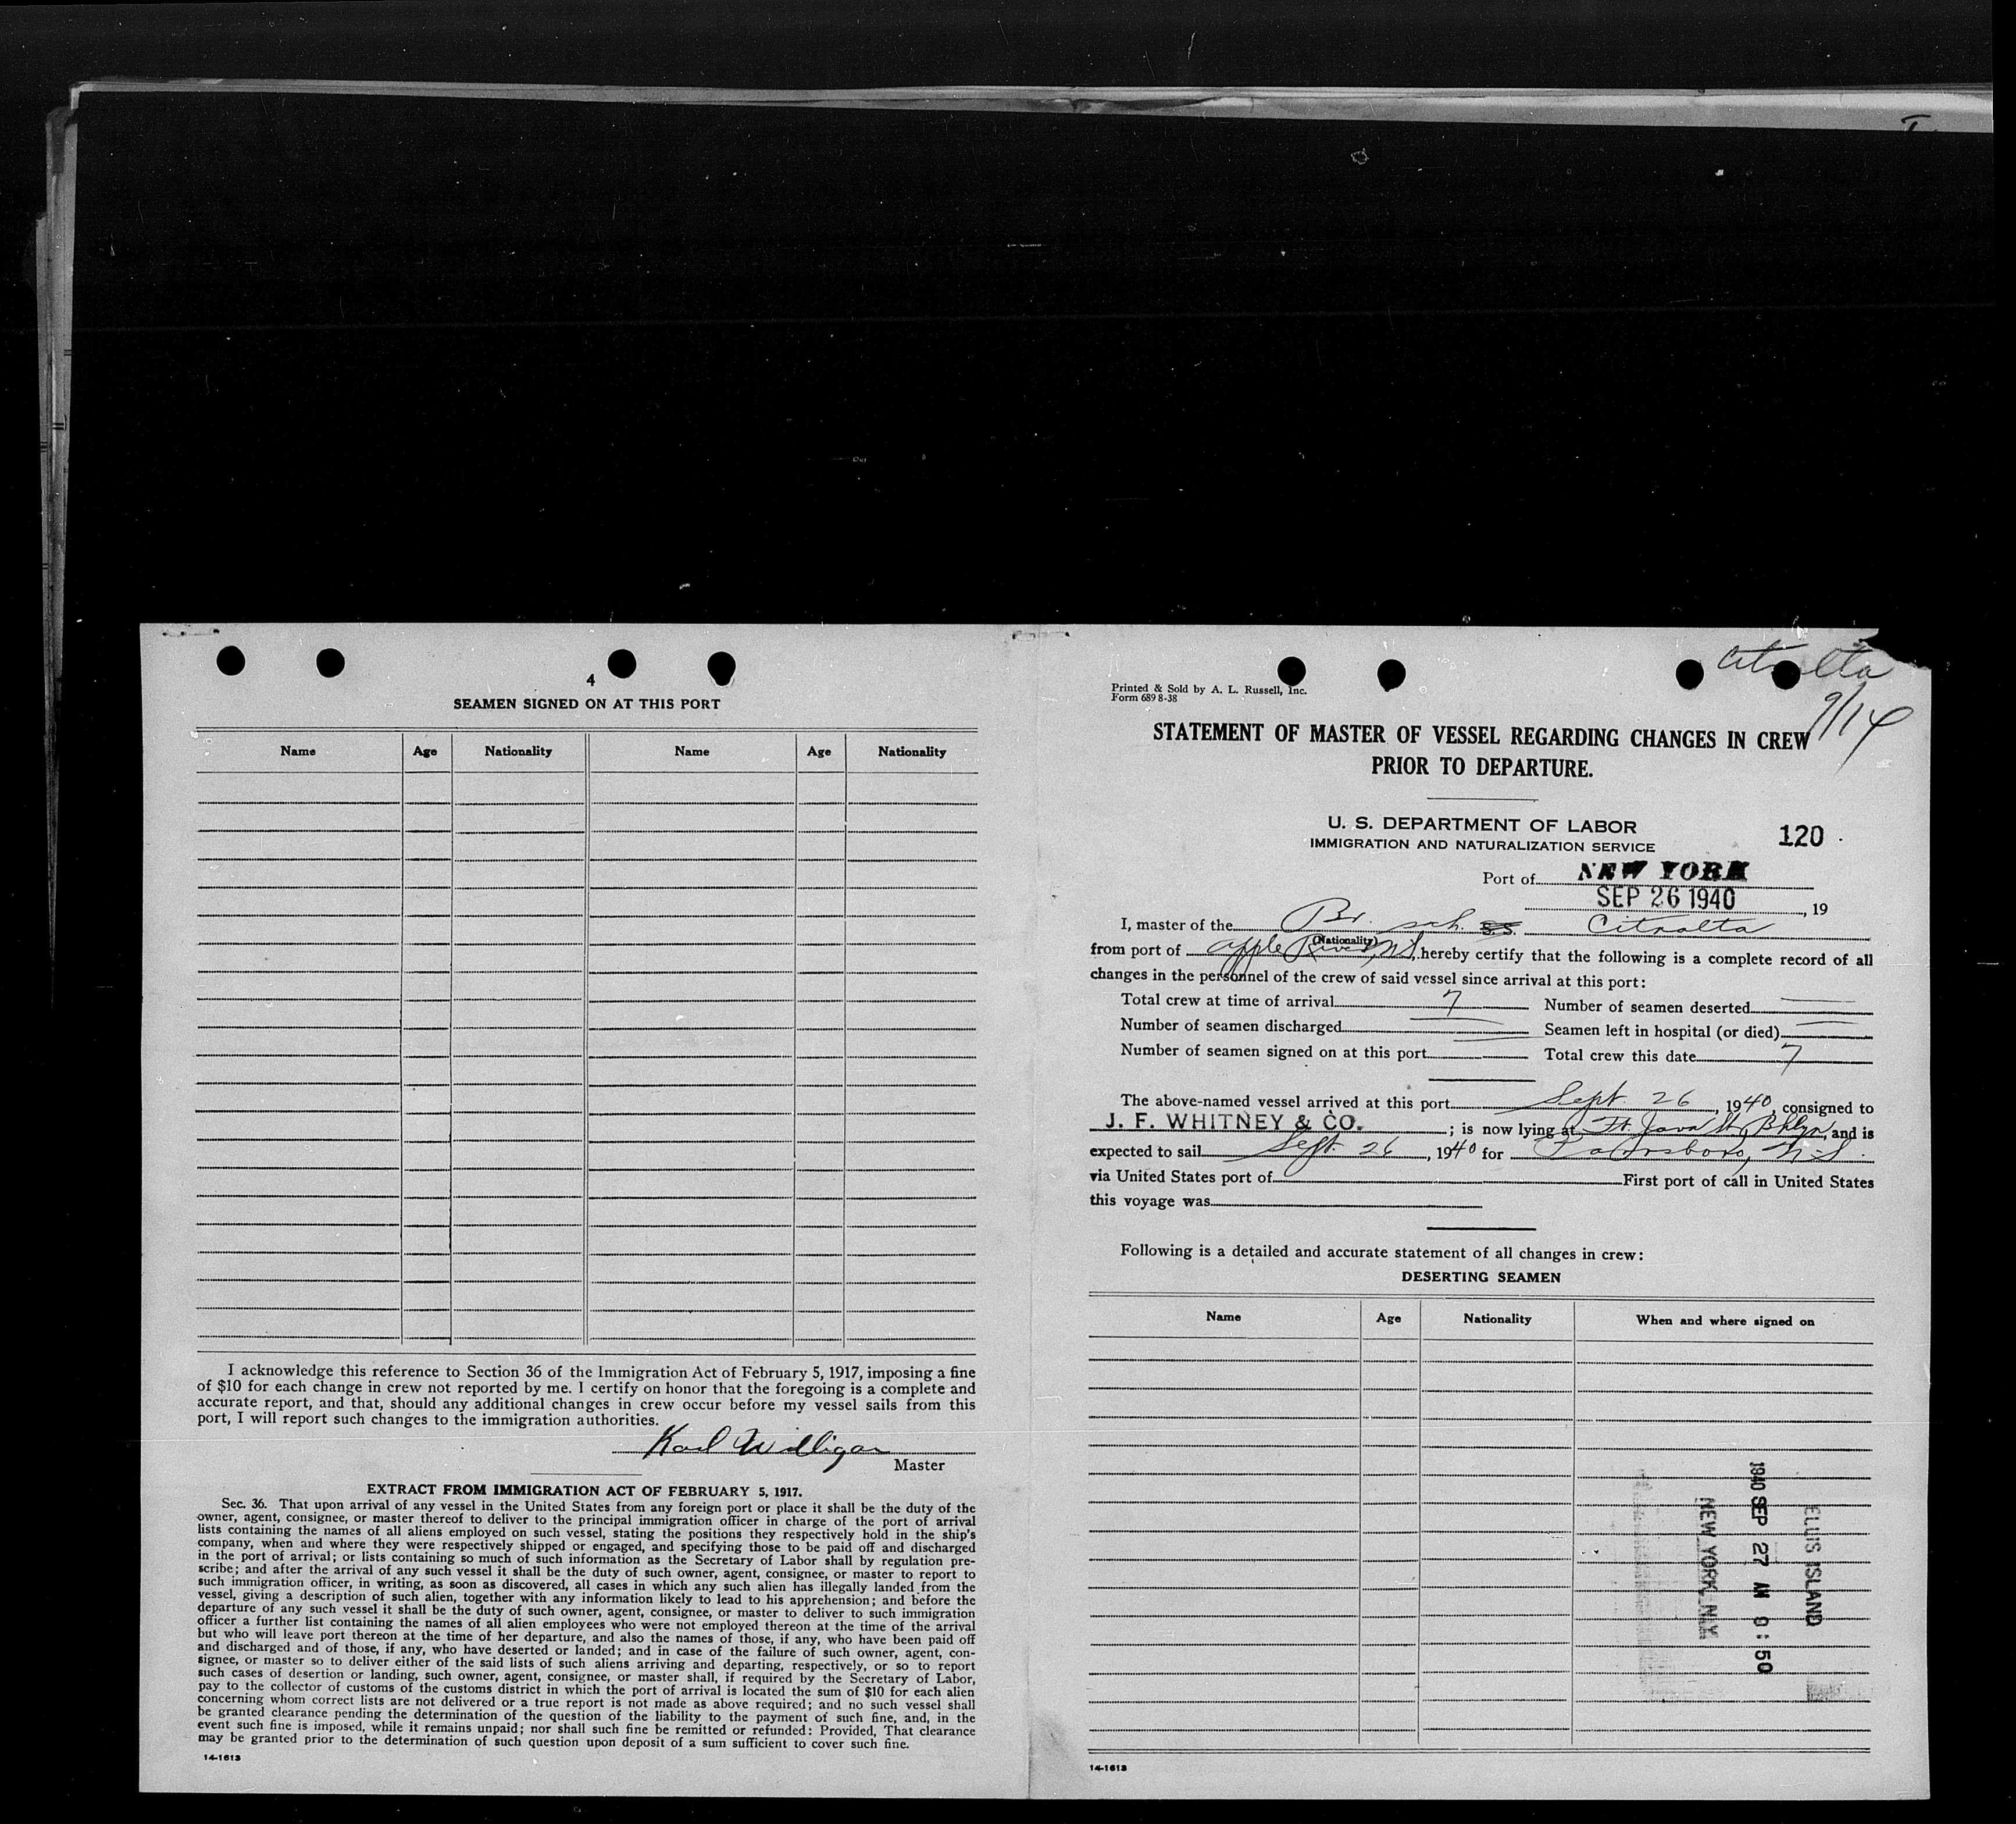 4
SEAMEN SIGNED ON AT THIS PORT
Name Age Nationality Name Age Nationality
I acknowledge this reference to Section 36 of the Immigration Act of February 5, 1917, imposing a fine
of $10 for each change in crew not reported by me. I certify on honor that the foregoing is a complete and
accurate report, and that, should any additional changes in crew occur before my vessel sails from this
port, I will report such changes to the immigration authorities.
Master
EXTRACT FROM IMMIGRATION ACT OF FEBRUARY 5, 1917.
Sec. 36. That upon arrival of any vessel in the United States from any foreign port or place it shall be the duty of the
owner, agent, consignee, or master thereof to deliver to the principal immigration officer in charge of the port of arrival
lists containing the names of all aliens employed on such vessel, stating the positions they respectively hold in the ship's
company, when and where they were respectively shipped or engaged, and specifying those to be paid off and discharged
in the port of arrival; or lists containing so much of such information as the Secretary of Labor shall by regulation pre-
scribe; and after the arrival of any such vessel it shall be the duty of such owner, agent, consignee, or master to report to
such immigration officer, in writing, as soon as discovered, all cases in which any such alien has illegally landed from the
vessel, giving a description of such alien, together with any information likely to lead to his apprehension; and before the
departure of any such vessel it shall be the duty of such owner, agent, consignee, or master to deliver to such immigration
officer a further list containing the names of all alien employees who were not employed thereon at the time of the arrival
but who will leave port thereon at the time of her departure, and also the names of those, if any, who have been paid off
and discharged and of those, if any, who have deserted or landed; and in case of the failure of such owner, agent, con-
signee, or master so to deliver either of the said lists of such aliens arriving and departing, respectively, or so to report
such cases of desertion or landing, such owner, agent, consignee, or master shall, if required by the Secretary of Labor,
pay to the collector of customs of the customs district in which the port of arrival is located the sum of $10 for each alien
concerning whom correct lists are not delivered or a true report is not made as above required; and no such vessel shall
be granted clearance pending the determination of the question of the liability to the payment of such fine, and, in the
event such fine is imposed, while it remains unpaid; nor shall such fine be remitted or refunded: Provided, That clearance
may be granted prior to the determination of such question upon deposit of a sum sufficient to cover such fine.
14-1613
Citralta
9/14
Printed & Sold by A. L. Russell, Inc.
Form 689 8-38
STATEMENT OF MASTER OF VESSEL REGARDING CHANGES IN CREW
PRIOR TO DEPARTURE.
U. S. DEPARTMENT OF LABOR
IMMIGRATION AND NATURALIZATION SERVICE
120
Port of NEW YORK
SEP 26 1940, 19
I, master of the Br. sch. S.S. Citnalta
(Nationality)
from port of Apple River, N.S. hereby certify that the following is a complete record of all
changes in the personnel of the crew of said vessel since arrival at this port:
Total crew at time of arrival 7 Number of seamen deserted
Number of seamen discharged Seamen left in hospital (or died)
Number of seamen signed on at this port Total crew this date 7
The above-named vessel arrived at this port Sept. 26, 1940, consigned to
J. F. WHITNEY & CO.; is now lying at Ft. Java St. Bklyn, and is
expected to sail Sept. 26, 1940 for Parrsboro, N-S.
via United States port of First port of call in United States
this voyage was
Following is a detailed and accurate statement of all changes in crew:
DESERTING SEAMEN
Name Age Nationality When and where signed on
ELLIS ISLAND
1940 SEP 27 AM 9:50
NEW YORK, N.Y.
14-1613